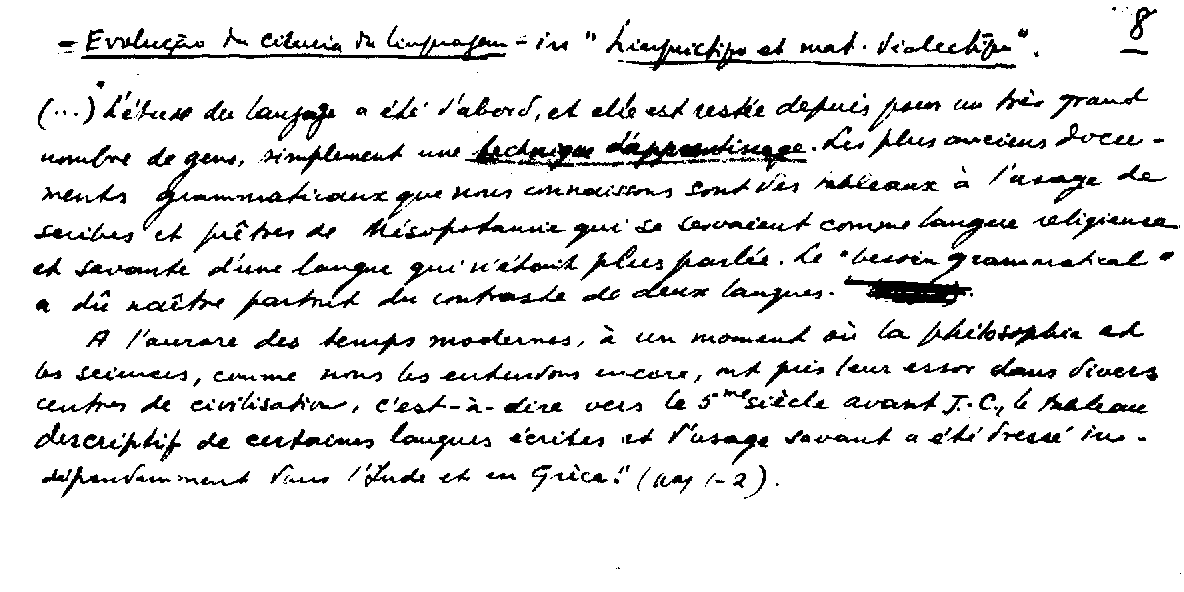 8
- Evolução da ciência da linguagem - in "Linguistique et mat. dialectique".
(...) "L'étude du langage a été d'abord, et elle est restée depuis pour un très grand
nombre de gens, simplement une technique d'apprentissage. Les plus anciens docu-
ments grammaticaux que nous connaissons sont des tableaux à l'usage de
scribes et prêtres de Mésopotamie qui se servaient comme langue religieuse
et savante d'une langue qui n'était plus parlée. Le "besoin grammatical"
a dû naître partout du contraste de deux langues.
A l'aurore des temps modernes, à un moment où la philosophie et
les sciences, comme nous les entendons encore, ont pris leur essor dans divers
centres de civilisation, c'est-à-dire vers le 5me siècle avant J.-C., le tableau
descriptif de certaines langues écrites et d'usage savant a été dressé in-
dépendamment dans l'Inde et en Grèce." (pag 1-2).